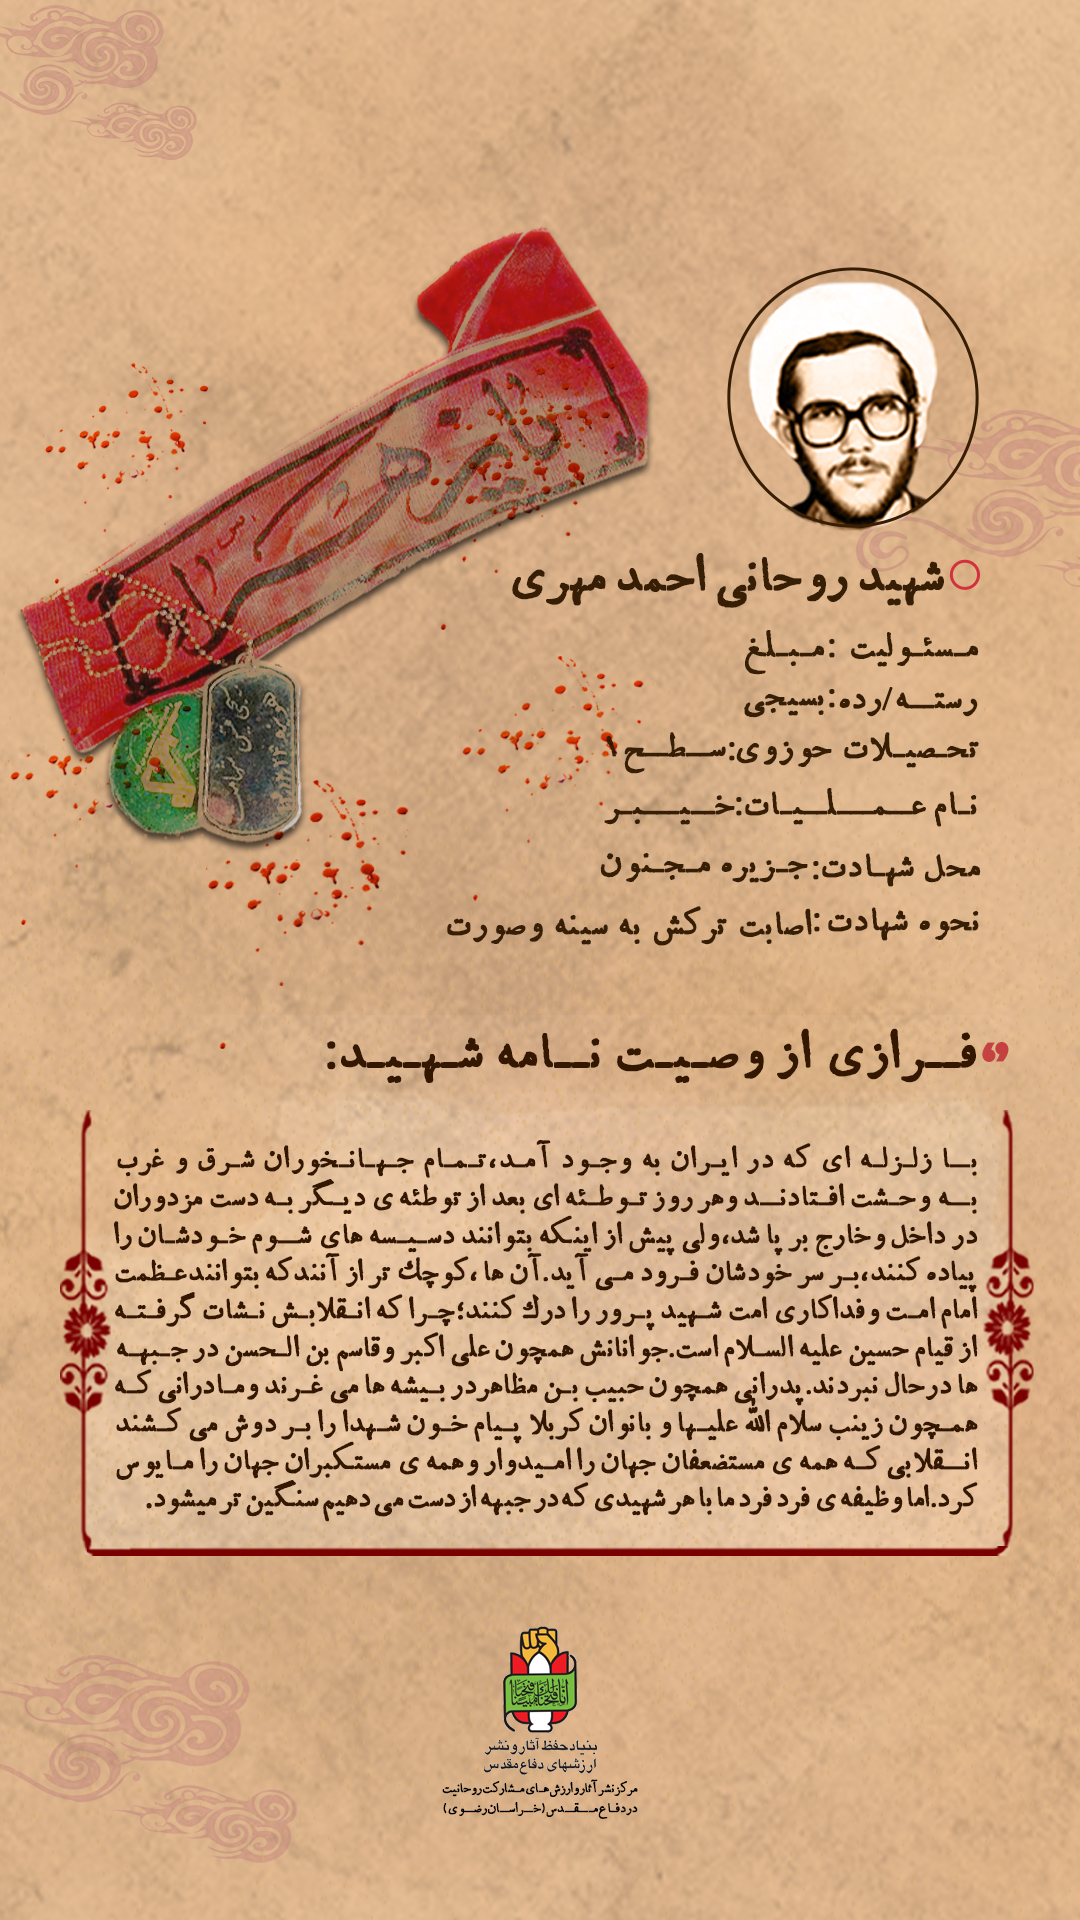 یا زهرا
شهید روحانی احمد مهری
مسئولیت :مبلغ
رسته/رده:بسیجی
تحصیلات حوزوی:سطح ۱
نام عملیات:خیبر
محل شهادت:جزیره مجنون
نحوه شهادت:اصابت ترکش به سینه وصورت
فرازی از وصیت نامه شهید:
با زلزله ای که در ایران به وجود آمد،تمام جهانخوران شرق و غرب
به وحشت افتادند وهر روز توطئه ای بعد از توطئه ی دیگر به دست مزدوران
در داخل وخارج بر پا شد،ولی پیش از اینکه بتوانند دسیسه های شوم خودشان را
پیاده کنند،بر سر خودشان فرود می آید.آن ها ،کوچك تر از آنندکه بتوانندعظمت
امام امت وفداکاری امت شهید پرور را درك کنند؛چرا که انقلابش نشات گرفته
از قیام حسین علیه السلام است.جوانانش همچون علی اکبر وقاسم بن الحسن در جبهه
ها درحال نبردند.پدرانی همچون حبیب بن مظاهردر بیشه ها می غرند ومادرانی که
همچون زینب سلام الله علیها و بانوان کربلا پیام خون شهدا را بر دوش می کشند
انقلابی که همه ی مستضعفان جهان را امیدوار وهمه ی مستکبران جهان را مایوس
کرد.اما وظیفه ی فرد فرد ما با هر شهیدی که در جبهه از دست می دهیم سنگین تر میشود.
بنیاد حفظ آثار و نشر
ارزشهای دفاع مقدس
مرکز نشر آثار و ارزش های مشارکت روحانیت
در دفاع مقدس (خراسان رضوی)